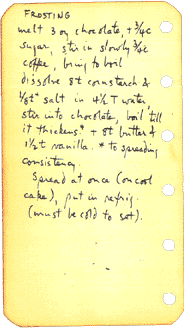 FROSTING
melt 3 oz chocolate, + 3/4c
sugar, stir in slowly 3/4c
coffee, bring to boil
dissolve 8t cornstarch &
1/8t salt in 4 1/2 T water
stir into chocolate, boil till
it thickens* + 8t butter &
1 1/2 t vanilla. * to spreading
consistency.
Spread at once (on cool
cake), put in refrig.
(must be cold to set).